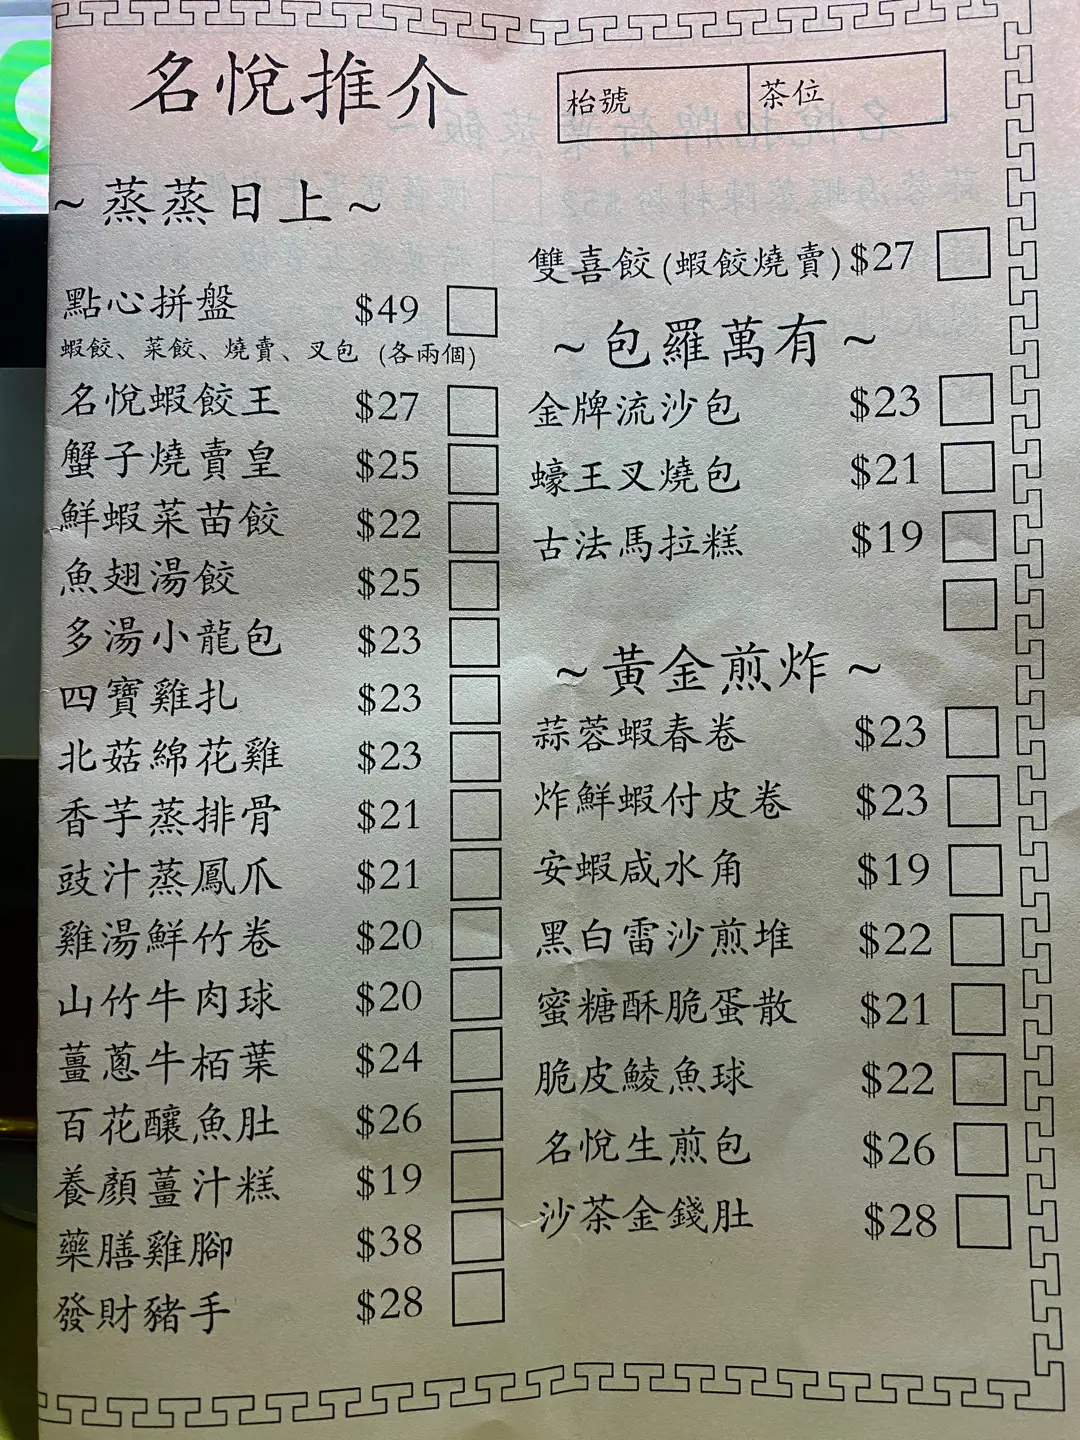 名悅推介
枱號 茶位
~蒸蒸日上~
點心拼盤 $49
蝦餃、菜餃、燒賣、叉包 (各兩個)
名悅蝦餃王 $27
蟹子燒賣皇 $25
鮮蝦菜苗餃 $22
魚翅湯餃 $25
多湯小龍包 $23
四寶雞扎 $23
北菇綿花雞 $23
香芋蒸排骨 $21
豉汁蒸鳳爪 $21
雞湯鮮竹卷 $20
山竹牛肉球 $20
薑蔥牛栢葉 $24
百花釀魚肚 $26
養顏薑汁糕 $19
藥膳雞腳 $38
發財豬手 $28
雙喜餃(蝦餃燒賣) $27
~包羅萬有~
金牌流沙包 $23
蠔王叉燒包 $21
古法馬拉糕 $19
~黃金煎炸~
蒜蓉蝦春卷 $23
炸鮮蝦付皮卷 $23
安蝦咸水角 $19
黑白雷沙煎堆 $22
蜜糖酥脆蛋散 $21
脆皮鯪魚球 $22
名悅生煎包 $26
沙茶金錢肚 $28